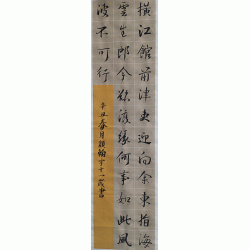 橫江館前津吏迎向余東指海
雲生郎今欲渡緣何事如此風
波不可行
辛丑春月翰宇十一歲書